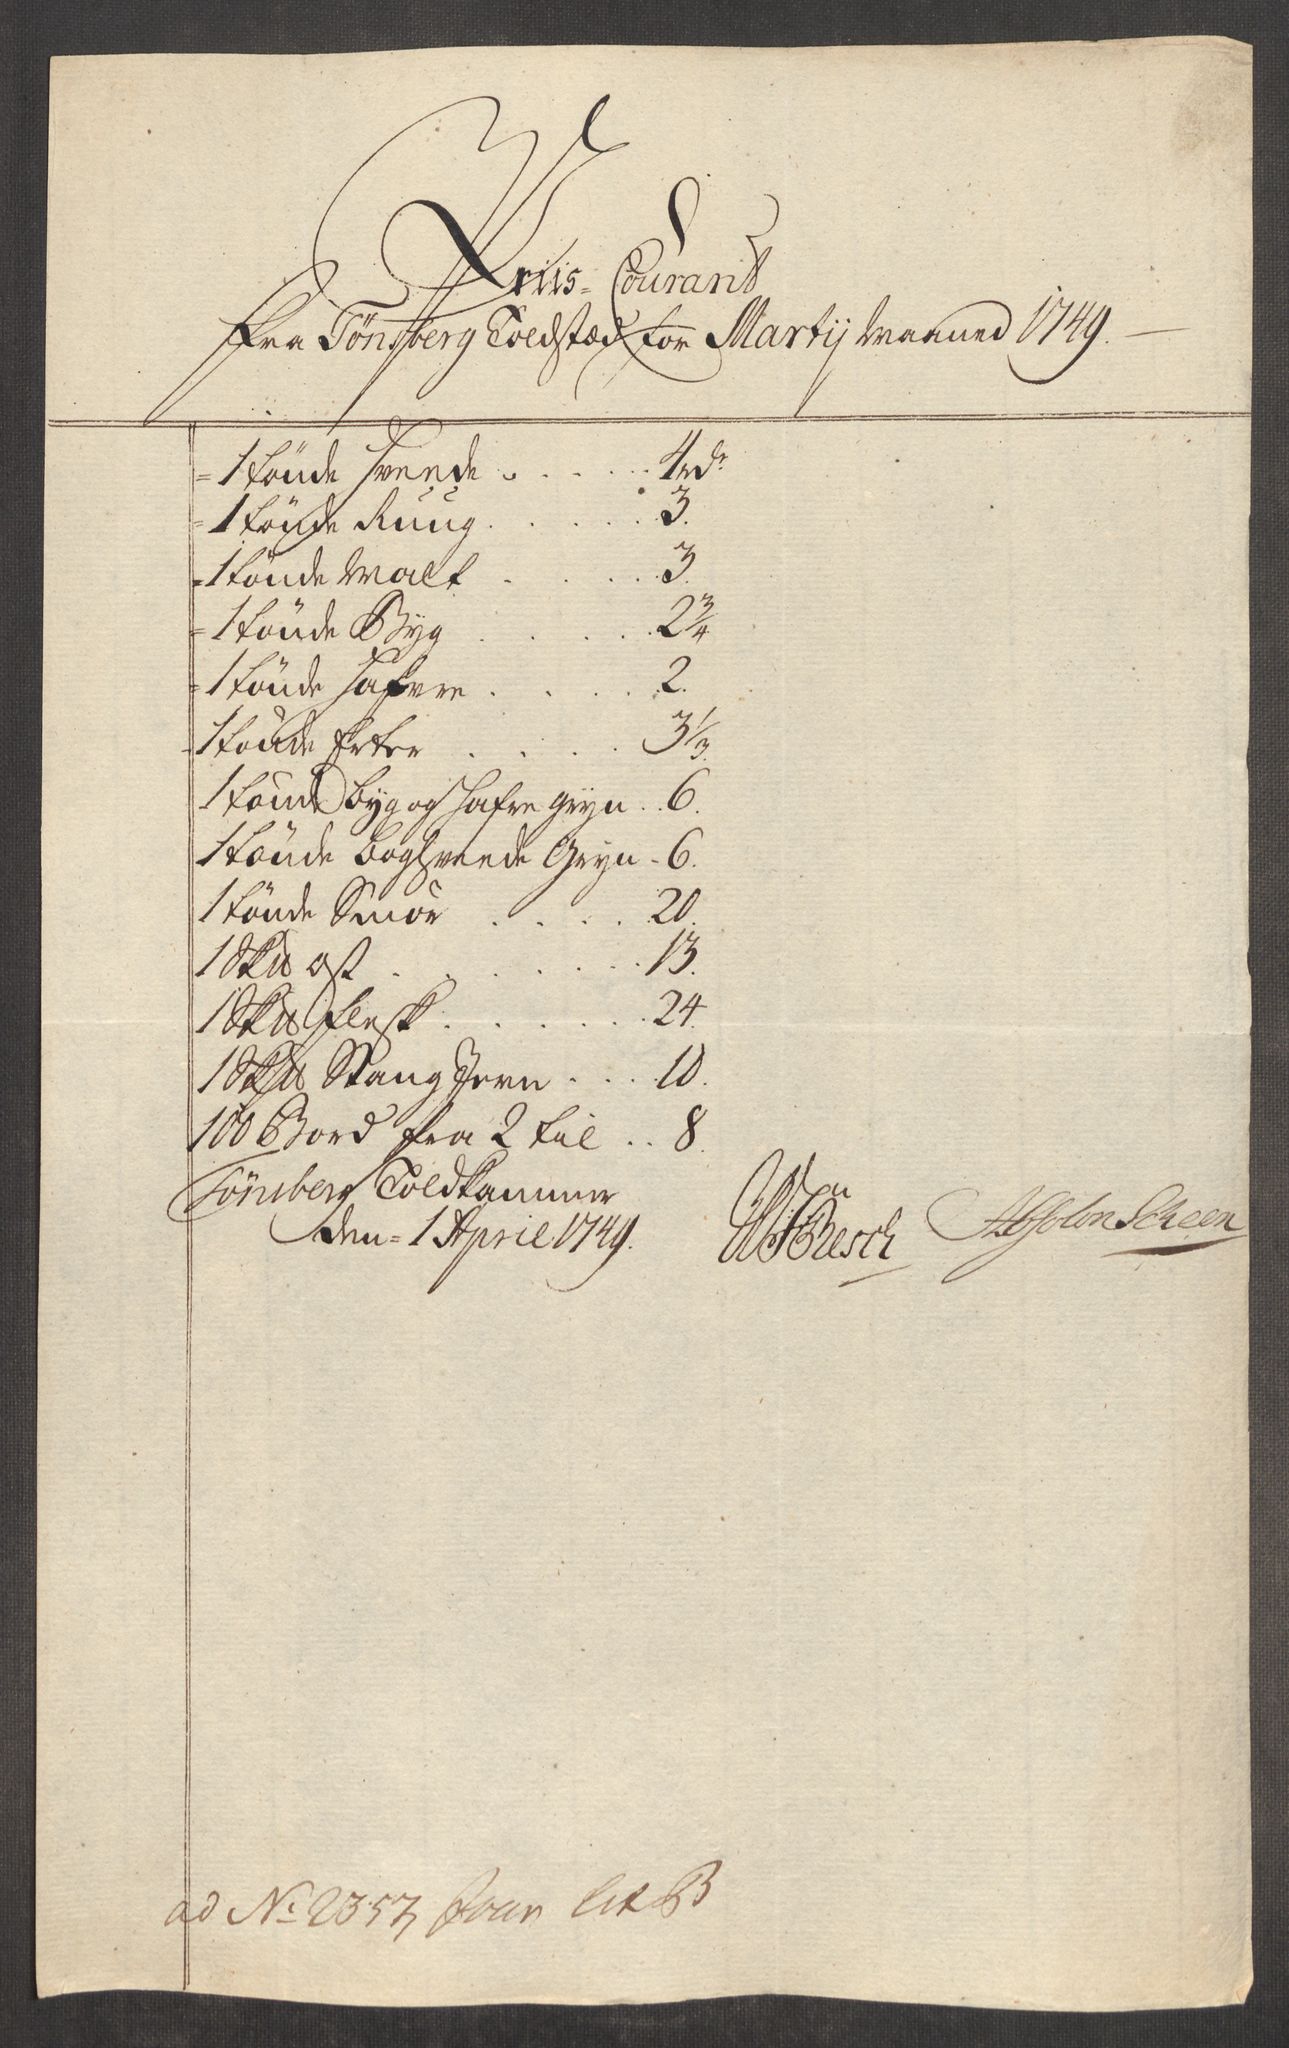 Priis- Courant
fra Tönsberg Toldstæd for Martij Maaned 1749.
1 tönde Hveede . . . . . 4 rdr
1 tönde Ruug . . . . . 3.
1 tönde Malt . . . . 3
1 tönde Byg . . . . . 2 3/4
1 tönde Hafvre . . . . 2.
1 tönde Erter . . . . 3 1/3.
1 tönde byg og Hafre gryn . . 6.
1 tönde boghveede Gryn - 6.
1 tönde Smör . . . . 20.
1 Sk℔ ost . . . . . . . 13.
1 Sk℔ flesk . . . . . . 24.
1 Sk℔ Stang Jern . . . 10.
100 Bord fra 2 til . . 8.
Tönsberg Toldkammer
den- 1 April 1749.
Resch Absolon Scheen
ad No 2357 Jour lit B